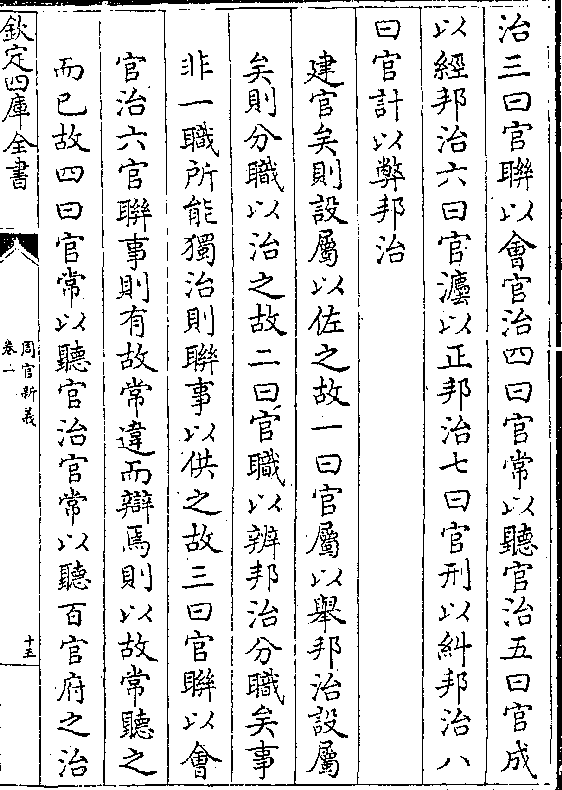 治三曰官聯以會官治四曰官常以聽官治五曰官成
以經邦治六曰官灋以正邦治七曰官刑以糾邦治八
曰官計以弊邦治
建官矣則設屬以佐之故一曰官屬以舉邦治設屬
矣則分職以治之故二曰官職以辨邦治分職矣事
非一職所能獨治則聯事以供之故三曰官聯以會
官治六官聯事則有故常違而辯焉則以故常聽之
而已故四曰官常以聽官治官常以聽百官府之治
欽定四庫全書
周官新義
卷一
十五